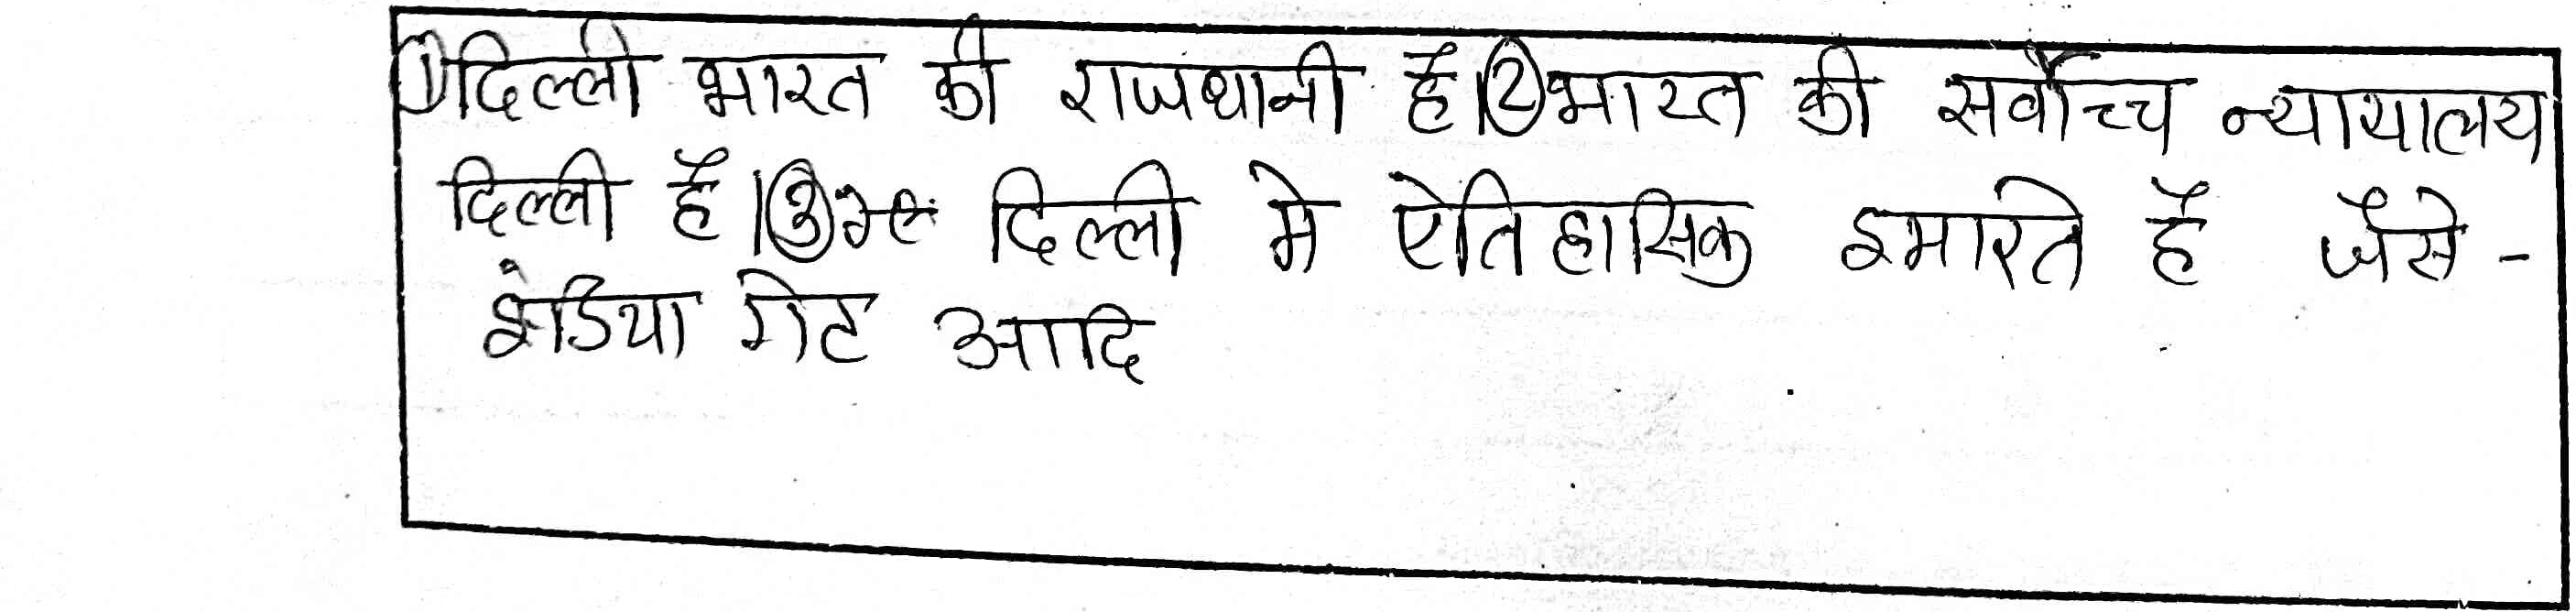 ①दिल्ली भारत की राजधानी है।②भारत की सर्वोच्च न्यायालय
दिल्ली है।③ दिल्ली मे ऐतिहासिक इमारते है जैसे -
इंडिया गेट आदि